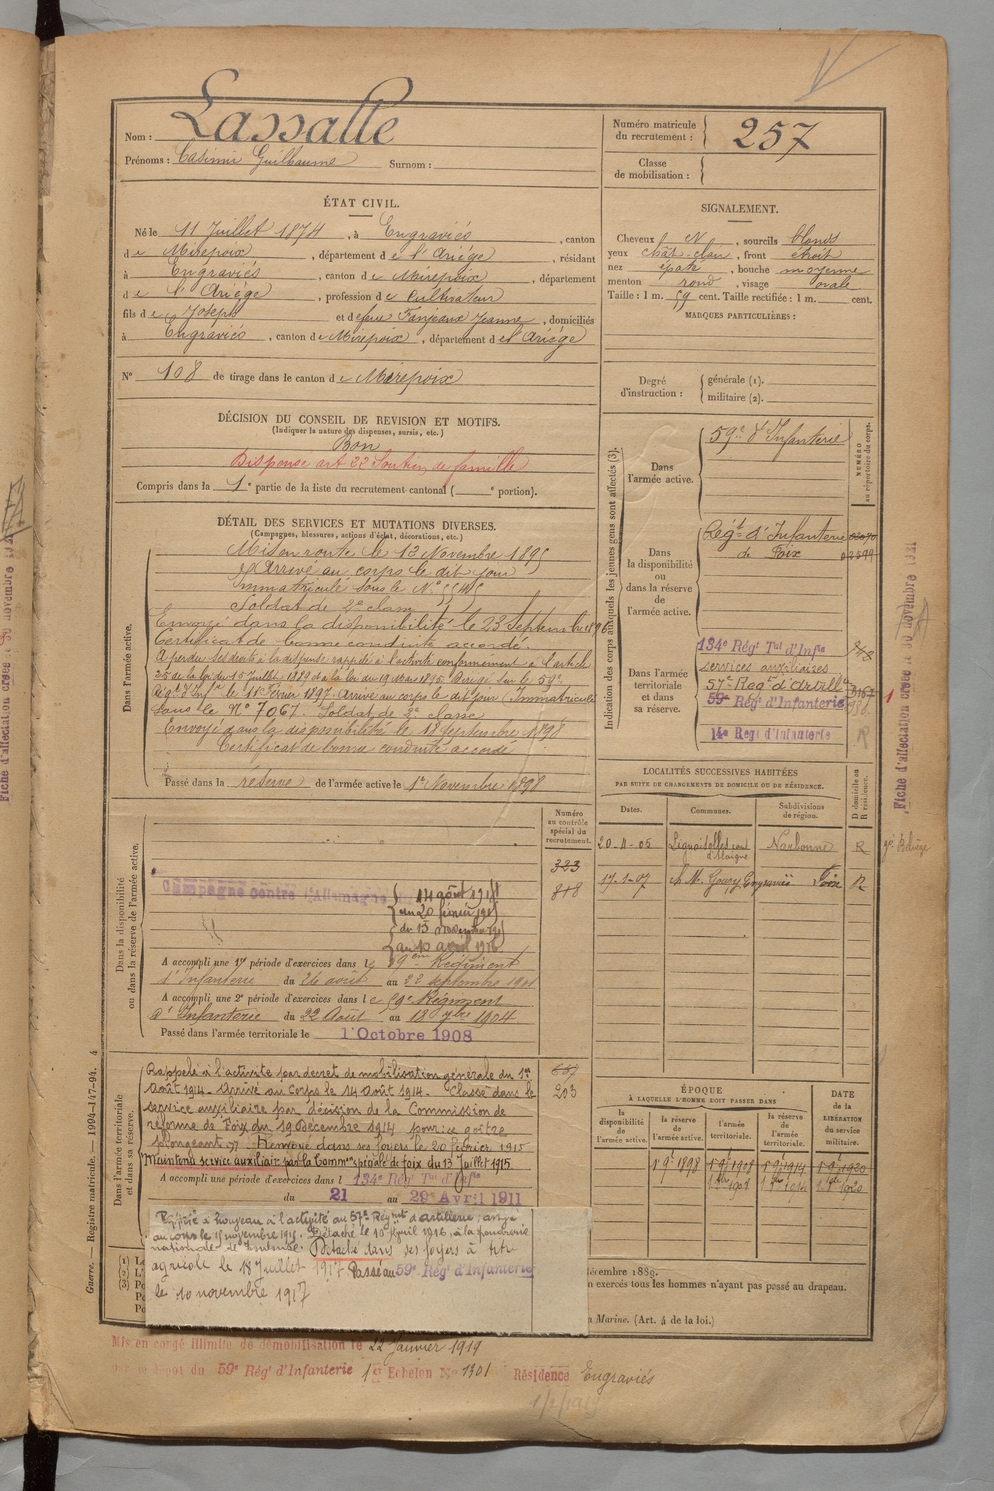 Nom : Lassalle
Prénoms : Casimir Guilhaume Surnom :
Numéro matricule du recrutement : 257
Classe de mobilisation :
ÉTAT CIVIL.
Né le 11 Juillet 1874, à Engraviès, canton
de Mirepoix, département de l'Ariège, résidant
à Engraviès, canton de Mirepoix, département
de l'Ariège, profession de Cultivateur
fils de Joseph et de feue Fanjeaux Jeanne, domiciliés
à Engraviès, canton de Mirepoix, département de l'Ariège
N° 108 de tirage dans le canton de Mirepoix
SIGNALEMENT.
Cheveux et, sourcils blonds
yeux chât-clair, front étroit
nez épaté, bouche moyenne
menton rond, visage ovale
Taille : 1 m. 59 cent. Taille rectifiée : 1 m. cent.
MARQUES PARTICULIÈRES :
Degré d'instruction : générale (1).
militaire (2).
DÉCISION DU CONSEIL DE REVISION ET MOTIFS.
(Indiquer la nature des dispenses, sursis, etc.)
Bon
Dispensé art 22 Soutien de famille
Compris dans la 1e partie de la liste du recrutement cantonal ( e portion).
DÉTAIL DES SERVICES ET MUTATIONS DIVERSES.
(Campagnes, blessures, actions d'éclat, décorations, etc.)
Dans l'armée active.
Mis en route le 13 Novembre 1895
Arrivé au corps le dit jour
Immatriculé sous le N°
Soldat de 2e classe
Envoyé dans la disponibilité le 23 Septembre 1896
Certificat de bonne conduite accordé.
A perdu ses droits à la dispense rappelé à l'activité conformément à l'article
25 de la loi du 15 Juillet 1889 et à la loi du 19 Mars 1895. Dirigé sur le 59e
Régt d'Infie le 11 Février 1897. Arrivé au corps le dit jour Immatriculé
sous le N° 7067. Soldat de 2e classe
Envoyé dans la disponibilité le 18 Septembre 1898
Certificat de bonne conduite accordé
Passé dans la réserve de l'armée active le 1er Novembre 1898
Indication des corps auxquels les jeunes gens sont affectés (3).
Dans l'armée active.
59e d'Infanterie
NUMÉRO au répertoire du corps.
Dans la disponibilité ou dans la réserve de l'armée active.
Régt d'Infanterie
de Foix
Dans l'armée territoriale et dans sa réserve.
134e Régt Tal d'Infie
services auxiliaires
57e Régt d'Artillie
59e Régt d'Infanterie
14e Régt d'Infanterie
LOCALITÉS SUCCESSIVES HABITÉES
PAR SUITE DE CHANGEMENTS DE DOMICILE OU DE RÉSIDENCE.
Dates. Communes. Subdivisions de région. D domicile ou R résidence.
Narbonne R
17-1-07 Engraviès Foix R
Dans la disponibilité ou dans la réserve de l'armée active.
Numéro au contrôle spécial du recrutement.
323
818
Campagne contre l'Allemagne
14 août 1914
au 20 février 1915
du 15 novembre 1915
au 10 avril 1916
A accompli une 1re période d'exercices dans le 59eme Régiment
d'Infanterie du 26 août au 22 septembre 1901
A accompli une 2e période d'exercices dans le 59e Régiment
d'Infanterie du 22 Août au 18 7bre 1904
Passé dans l'armée territoriale le 1 Octobre 1908
Dans l'armée territoriale et dans sa réserve.
Rappelé à l'activité par décret de mobilisation générale du 1er
Août 1914. Arrivé au Corps le 14 août 1914. Classé dans le
service auxiliaire par décision de la Commission de
réforme de Foix du 19 décembre 1914 pour "goitre
plongeant". Renvoyé dans ses foyers le 20 février 1915
Maintenu service auxiliaire par la Common spéciale de foix du 13 Juillet 1915
203
A accompli une période d'exercices dans l 134e Régt Tal d'Infie
du 21 au 29 Avril 1911
Rappelé à nouveau à l'activité au 57e Régiment d'artillerie; arrivé
au corps le 15 novembre 1915. Détaché le 10 Avril 1916, à la poudrerie
nationale de Toulouse. Détaché dans ses foyers à titre
agricole le 18 Juillet 1917 Passé au 59e Régt d'Infanterie
le 10 novembre 1917
ÉPOQUE
À LAQUELLE L'HOMME DOIT PASSER DANS
la disponibilité de l'armée active. la réserve de l'armée active. l'armée territoriale. la réserve de l'armée territoriale.
DATE de la LIBÉRATION DU service militaire.
1 9e 1898 1 9e 1908 1 9e 1914 1 9e 1920
décembre 1889.
n exercés tous les hommes n'ayant pas passé au drapeau.
Marine. (Art. 4 de la loi.)
Mis en congé illimité de démobilisation le 22 Janvier 1919
dépot du 59e Régt d'Infanterie 1er Echelon No 1301 Résidence Engraviès
Guerre. — Registre matricule. — 1994-147-94. 4
Fiche d'affectation créée le 30 novembre 1921